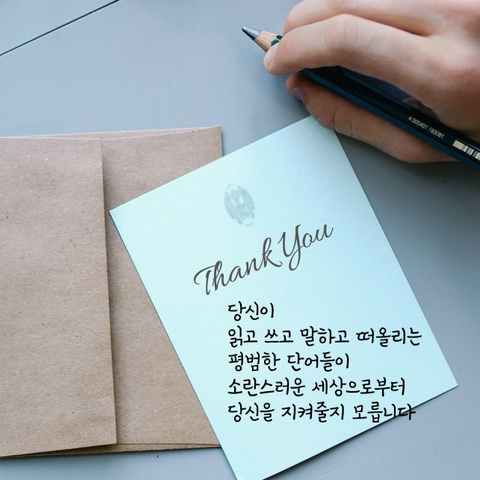 Thank You
당신이
읽고 쓰고 말하고 떠올리는
평범한 단어들이
소란스러운 세상으로부터
당신을 지켜줄지 모릅니다